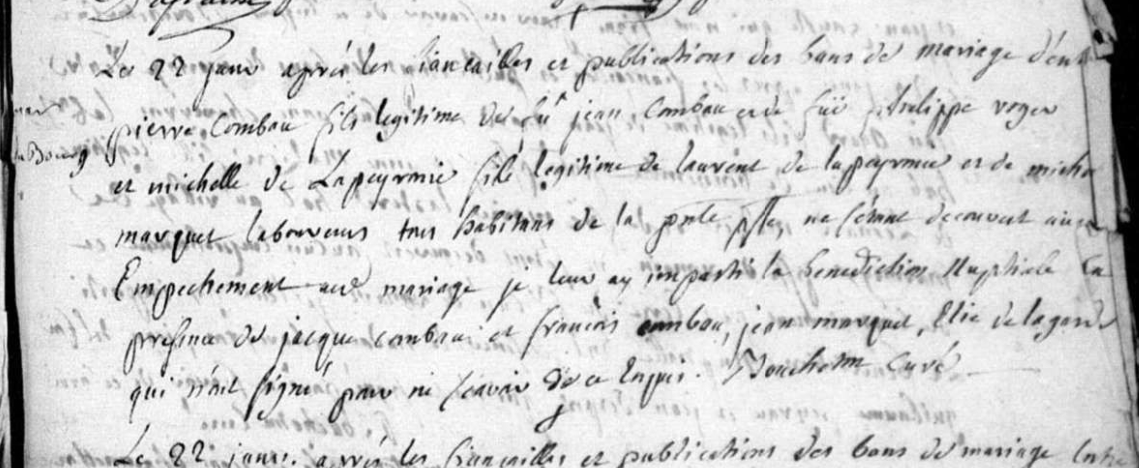 Le 22 janv aprés les fiancailles et publications des bans de mariage d'ent
pierre Combau fils legitime de fû jean Combau et de fuë philippe roger
et michelle de Lapeyronie fille legitime de laurent de lapeyronie et de miche
marquet laboureurs tous habitans de la pnte psse, ne sétant decouvert aucun
Empechement aud mariage je leur ay imparti la benediction Nuptiale En
presence de jacque combau et francois combau, jean marquet, Elie de lagarde
qui n'ont signé pour ne scavoir de ce Enquis. Curé
Le 22 janv. aprés les fiancailles et publications des bans de mariage Entre